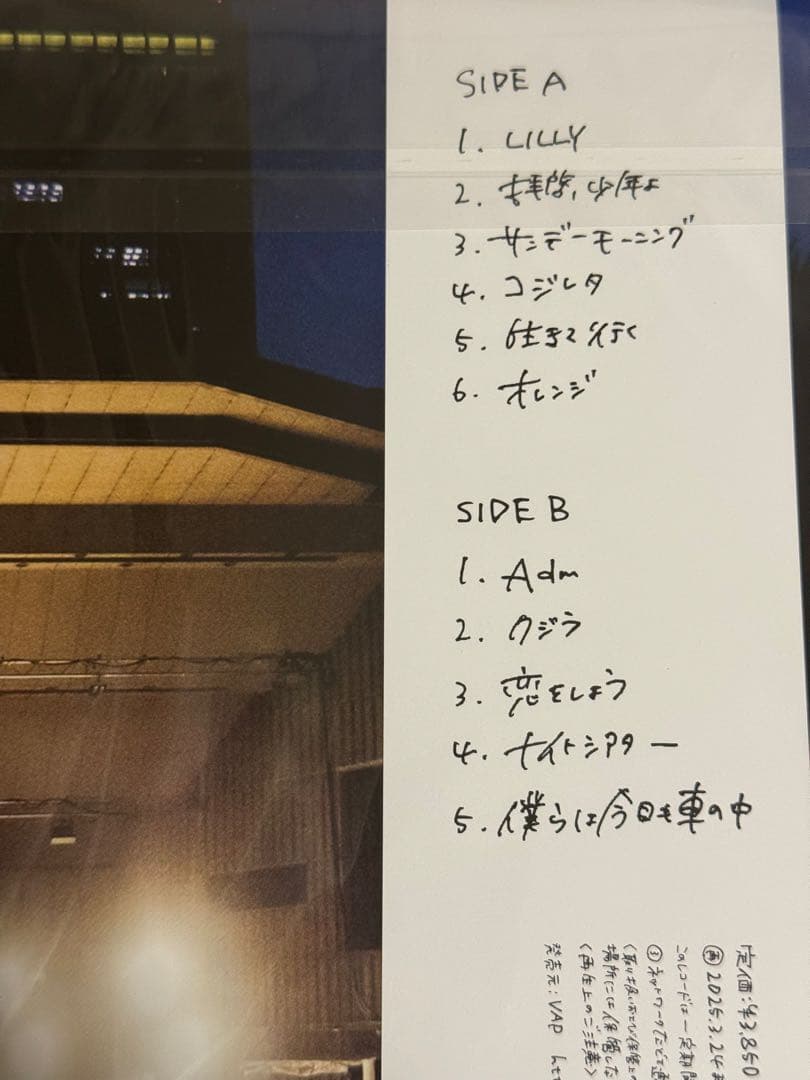 SIDE A
1. LILLY
2. 拝啓、少年よ
3. サンデーモーニング
4. コジレタ
5. 生きて行く
6. オレンジ
SIDE B
1. Adm
2. クジラ
3. 恋をしよう
4. ナイトシアター
5. 僕らは今日も車の中
定価:¥3,850
2025.3.24
このレコードは一定期
ネットワークなどで
場所には保管しな
<再生上のご注意>
発売元:VAP